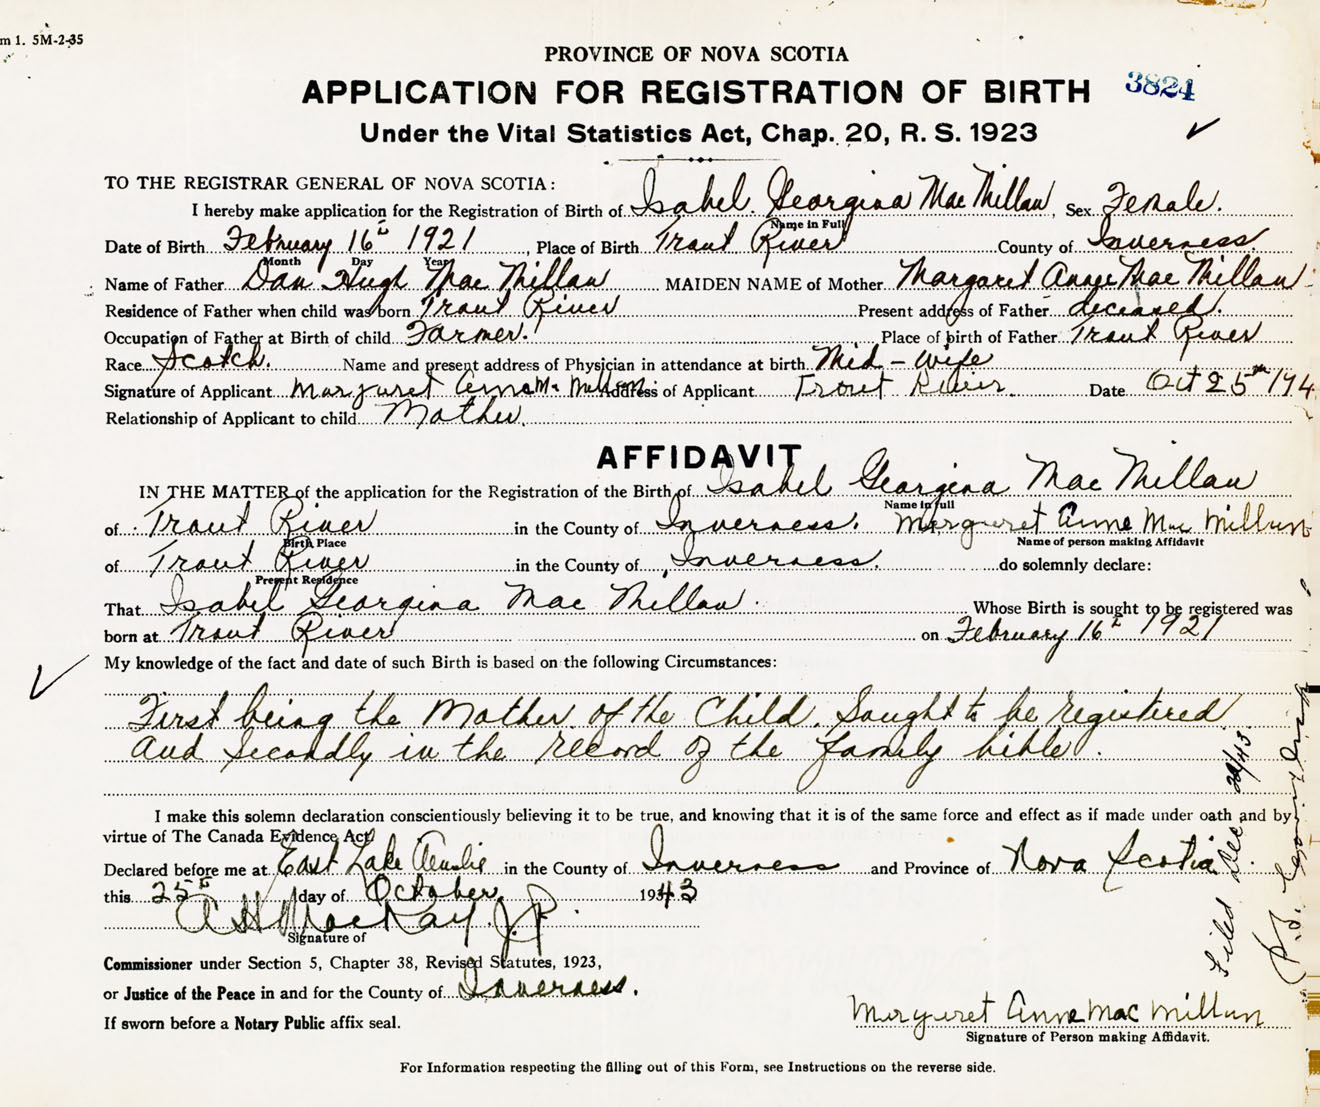 m 1. 5M-2-35
PROVINCE OF NOVA SCOTIA
APPLICATION FOR REGISTRATION OF BIRTH 3824
Under the Vital Statistics Act, Chap. 20, R. S. 1923
TO THE REGISTRAR GENERAL OF NOVA SCOTIA:
I hereby make application for the Registration of Birth of Isabel Georgina Mac Millan, Sex Female.
Name in Full
Date of Birth February 16th 1921, Place of Birth Trout River County of Inverness.
Month Day Year
Name of Father Dan Hugh Mac Millan MAIDEN NAME of Mother Margaret Anne Mac Millan
Residence of Father when child was born Trout River Present address of Father deceased.
Occupation of Father at Birth of child Farmer. Place of birth of Father Trout River
Race Scotch. Name and present address of Physician in attendance at birth Mid-wife
Signature of Applicant Margaret Anne Mc Millan Address of Applicant Trout River. Date Oct 25th 194
Relationship of Applicant to child Mother.
AFFIDAVIT
IN THE MATTER of the application for the Registration of the Birth of Isabel Georgina Mac Millan
Name in full
of Trout River in the County of Inverness. Margaret Anne Mac Millan
Birth Place Name of person making Affidavit
of Trout River in the County of Inverness. do solemnly declare:
Present Residence
That Isabel Georgina Mac Millan Whose Birth is sought to be registered was
born at Trout River on February 16th 1921
My knowledge of the fact and date of such Birth is based on the following Circumstances:
First being the Mother of the Child. Sought to be registered
and Secondly in the record of the family bible.
I make this solemn declaration conscientiously believing it to be true, and knowing that it is of the same force and effect as if made under oath and by
virtue of The Canada Evidence Act.
Declared before me at East Lake Ainslie in the County of Inverness and Province of Nova Scotia
this 25th day of October 1943
A H MacKay. J.P.
Signature of
Commissioner under Section 5, Chapter 38, Revised Statutes, 1923,
or Justice of the Peace in and for the County of Inverness.
If sworn before a Notary Public affix seal.
Margaret Anne Mac Millan
Signature of Person making Affidavit.
For Information respecting the filling out of this Form, see Instructions on the reverse side.
Filed Dec 22/43